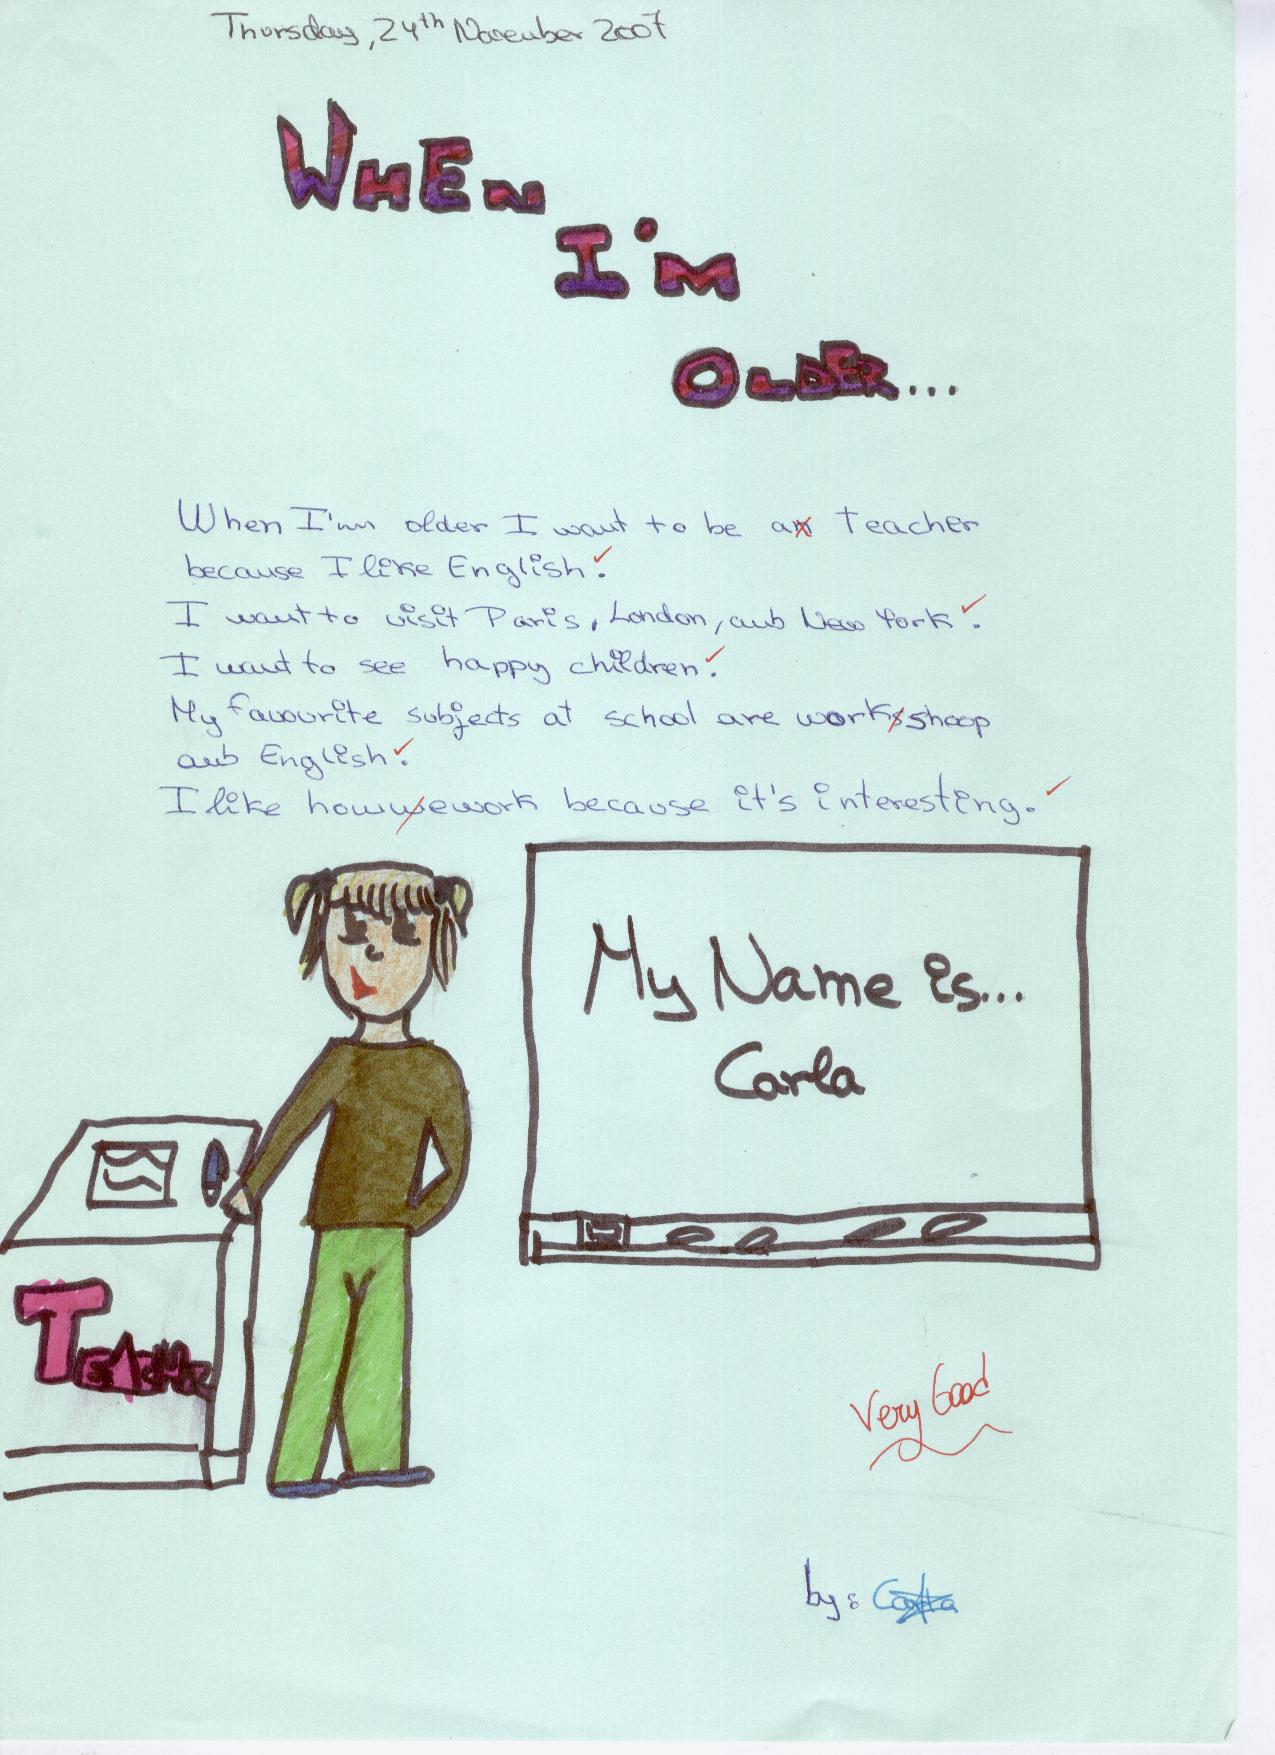 Thursday, 24th November 2007
WHEN
I'M
OLDER...
When I'm older I want to be an teacher
because I like English.
I want to visit Paris, London, aub New York.
I want to see happy children.
My favourite subjects at school are worksshoop
aub English.
I like howewework because it's interesting.
My Name is...
Carla
TEACHER
Very Good
by: Carla